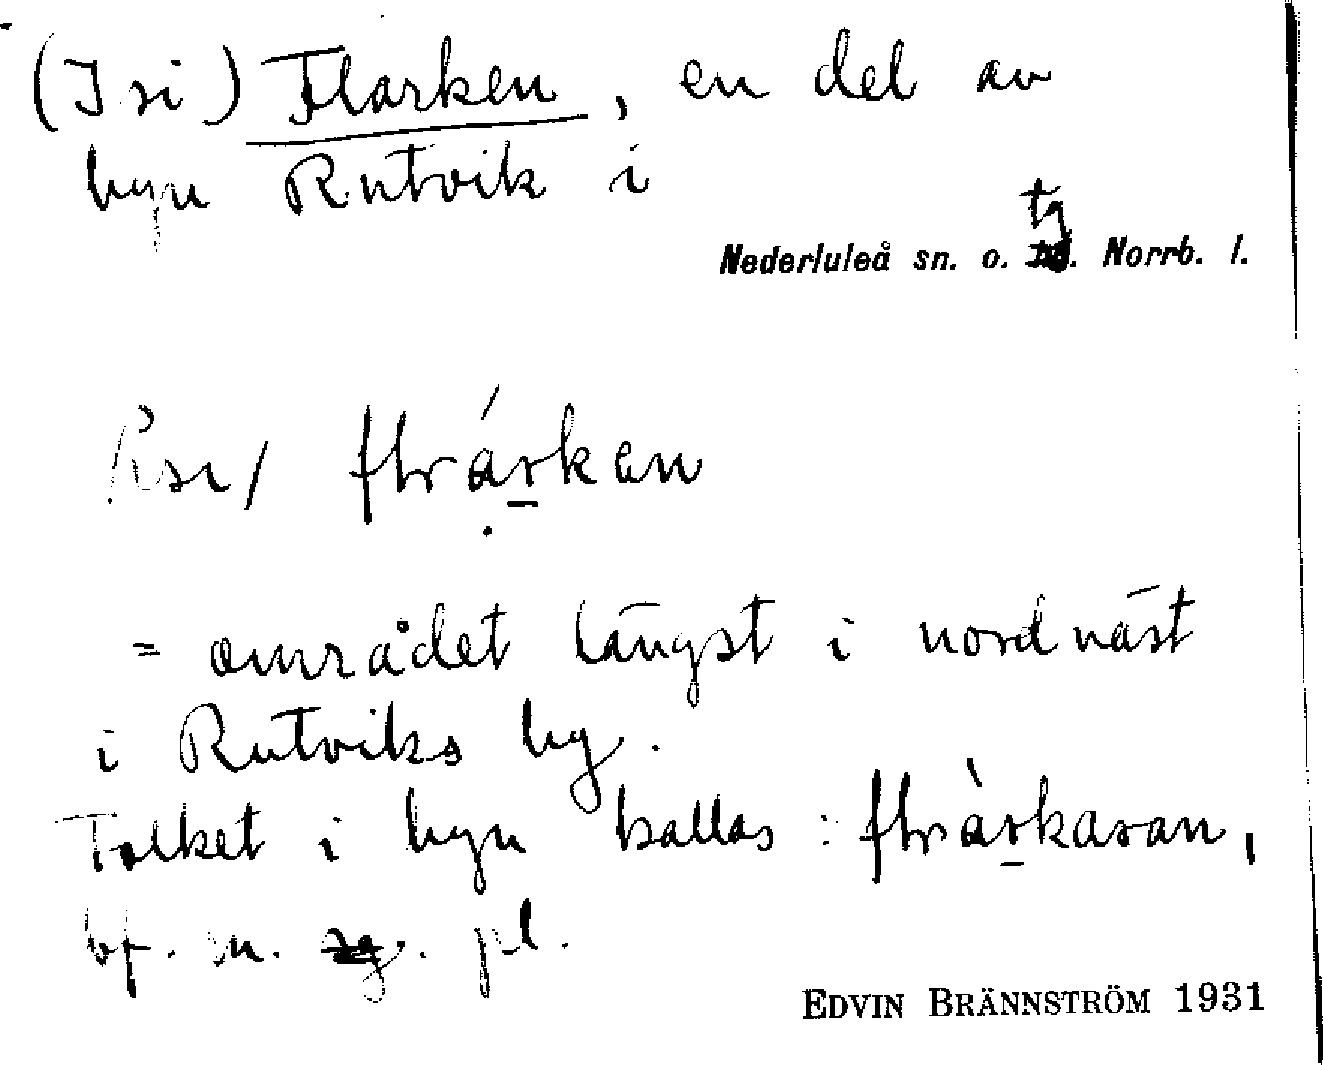 (I si) Flarken, en del av
byn Rutvik i
tg
Nederluleå sn. o. Norrb. l.
= området längst i nordväst
i Rutviks by.
Folket i byn kallas :
bf. m. sg. pl.
EDVIN BRÄNNSTRÖM 1931